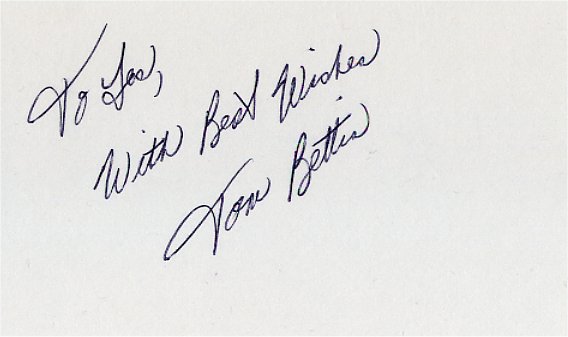 To Les,
With Best Wishes
Tom Bettis